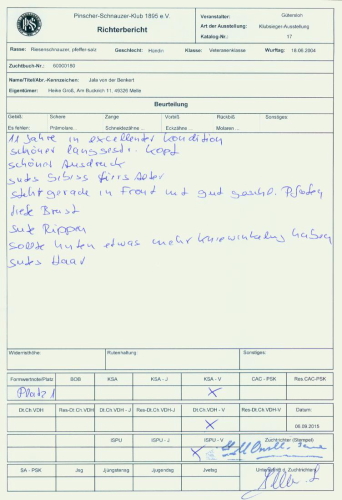 Pinscher-Schnauzer-Klub 1895 e.V.
Richterbericht
Veranstalter: Gütersloh
Art der Ausstellung: Klubsieger-Ausstellung
Katalog-Nr.: 17
Rasse: Riesenschnauzer, pfeffer-salz Geschlecht: Hündin Klasse: Veteranenklasse Wurftag: 18.08.2004
Zuchtbuch-Nr.: 60000189
Name/Titel/Abr.-Kennzeichen: Jale von der Beinkert
Eigentümer: Heike Groß, Am Buckrich 11, 49326 Melle
Beurteilung
Gebiß: Schere Zange Vorbiß Rückbiß Sonstiges:
Es fehlen: Prämolare... Schneidezähne .. Eckzähne ... Molaren ...
11 Jahre in excellenter Kondition
schöner langgestr. Kopf
schöner Ausdruck
gutes Gebiss fürs Alter
steht gerade in Front und gut geschl. Pfoten
tiefe Brust
gute Rippen
sollte hinten etwas mehr Kniewinkelung haben
gutes Haar
Widerristhöhe: Rutenhaltung Sonstiges:
Formwertnote/Platz BOB KSA KSA - J KSA - V CAC - PSK Res.CAC-PSK
Platz 1 X
Dt.Ch.VDH Res-Dt.Ch.VDH Dt.Ch.VDH - J Res-Dt.Ch.VDH-J Dt.Ch.VDH - V Res-Dt.Ch.VDH-V Datum:
X 06.09.2015
ISPU ISPU - J ISPU - V Zuchtrichter (Stempel)
X
SA - PSK Jsg Jüngstensg Jugendsg Jvetsg Unterschrift d. Zuchtrichters